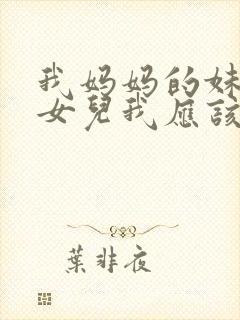 我妈妈的妹
女兒我應該
葉非夜